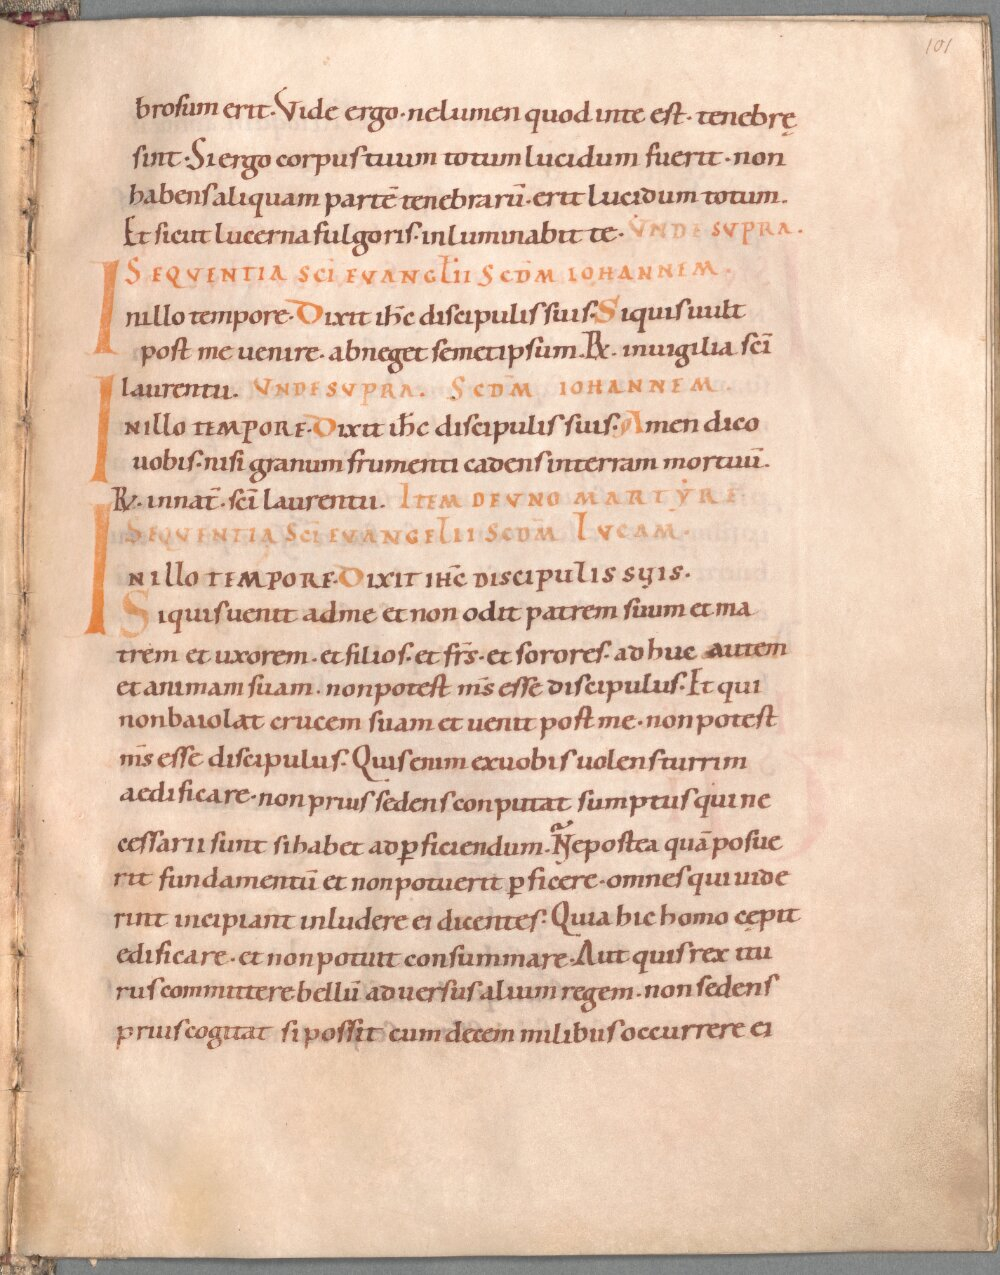 101
brosum erit. Vide ergo. ne lumen quod in te est. tenebrę
sint. Si ergo corpus tuum totum lucidum fuerit. non
habens aliquam partē tenebrarū. erit lucidum totum.
Et sicut lucerna fulgoris. inluminabit te. VNDE SVPRA.
SEQVENTIA SCĪ EVANGLĪI SCDM̄ IOHANNEM.
In illo tempore. Dixit ihc̄ discipulis suis. Si quis uult
post me uenire. abneget semetipsum. R̸. in uigilia scī
laurentii. VNDE SVPRA. SCDM̄ IOHANNEM.
IN ILLO TEMPORE. Dixit ihc̄ discipulis suis. Amen dico
uobis. nisi granum frumenti cadens in terram mortuū.
R̸. in nat̄. scī laurentii. ITEM DE VNO MARTYRE.
SEQVENTIA SCĪ EVANGELII SCDM̄ LVCAM.
IN ILLO TEMPORE. DIXIT IHC̄ DISCIPULIS SUIS.
Si quis uenit ad me et non odit patrem suum et ma
trem et uxorem. et filios. et frs̄. et sorores. adhuc autem
et animam suam. non potest ms̄ esse discipulus. Et qui
non baiolat crucem suam et uenit post me. non potest
ms̄ esse discipulus. Quis enim ex uobis uolens turrim
aedificare. non prius sedens conputat sumptus qui ne
cessarii sunt si habet ad ꝑficiendum. Ne postea quā posue
rit fundamentū et non potuerit ꝑficere. omnes qui uide
rint incipiant inludere ei dicentes. Quia hic homo cępit
edificare. et non potuit consummare. Aut quis rex itu
rus committere bellū aduersus alium regem. non sedens
prius cogitat si possit cum decem milibus occurrere ei